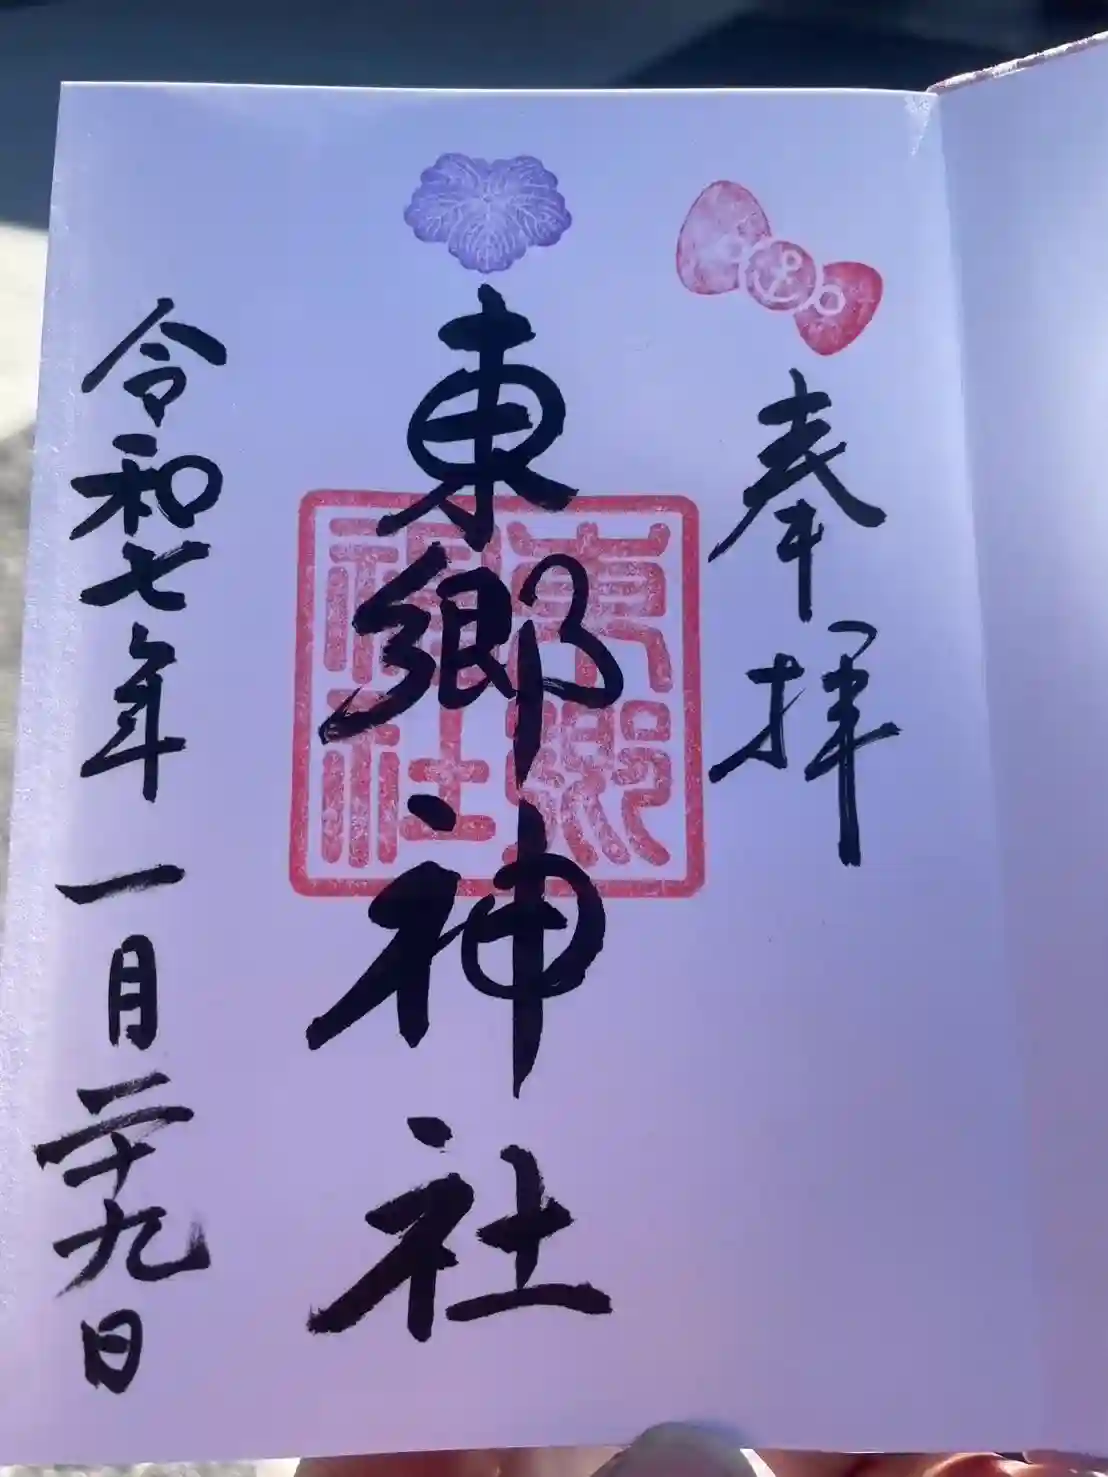 奉拝
東郷神社
東郷
神社
令和七年一月二十九日